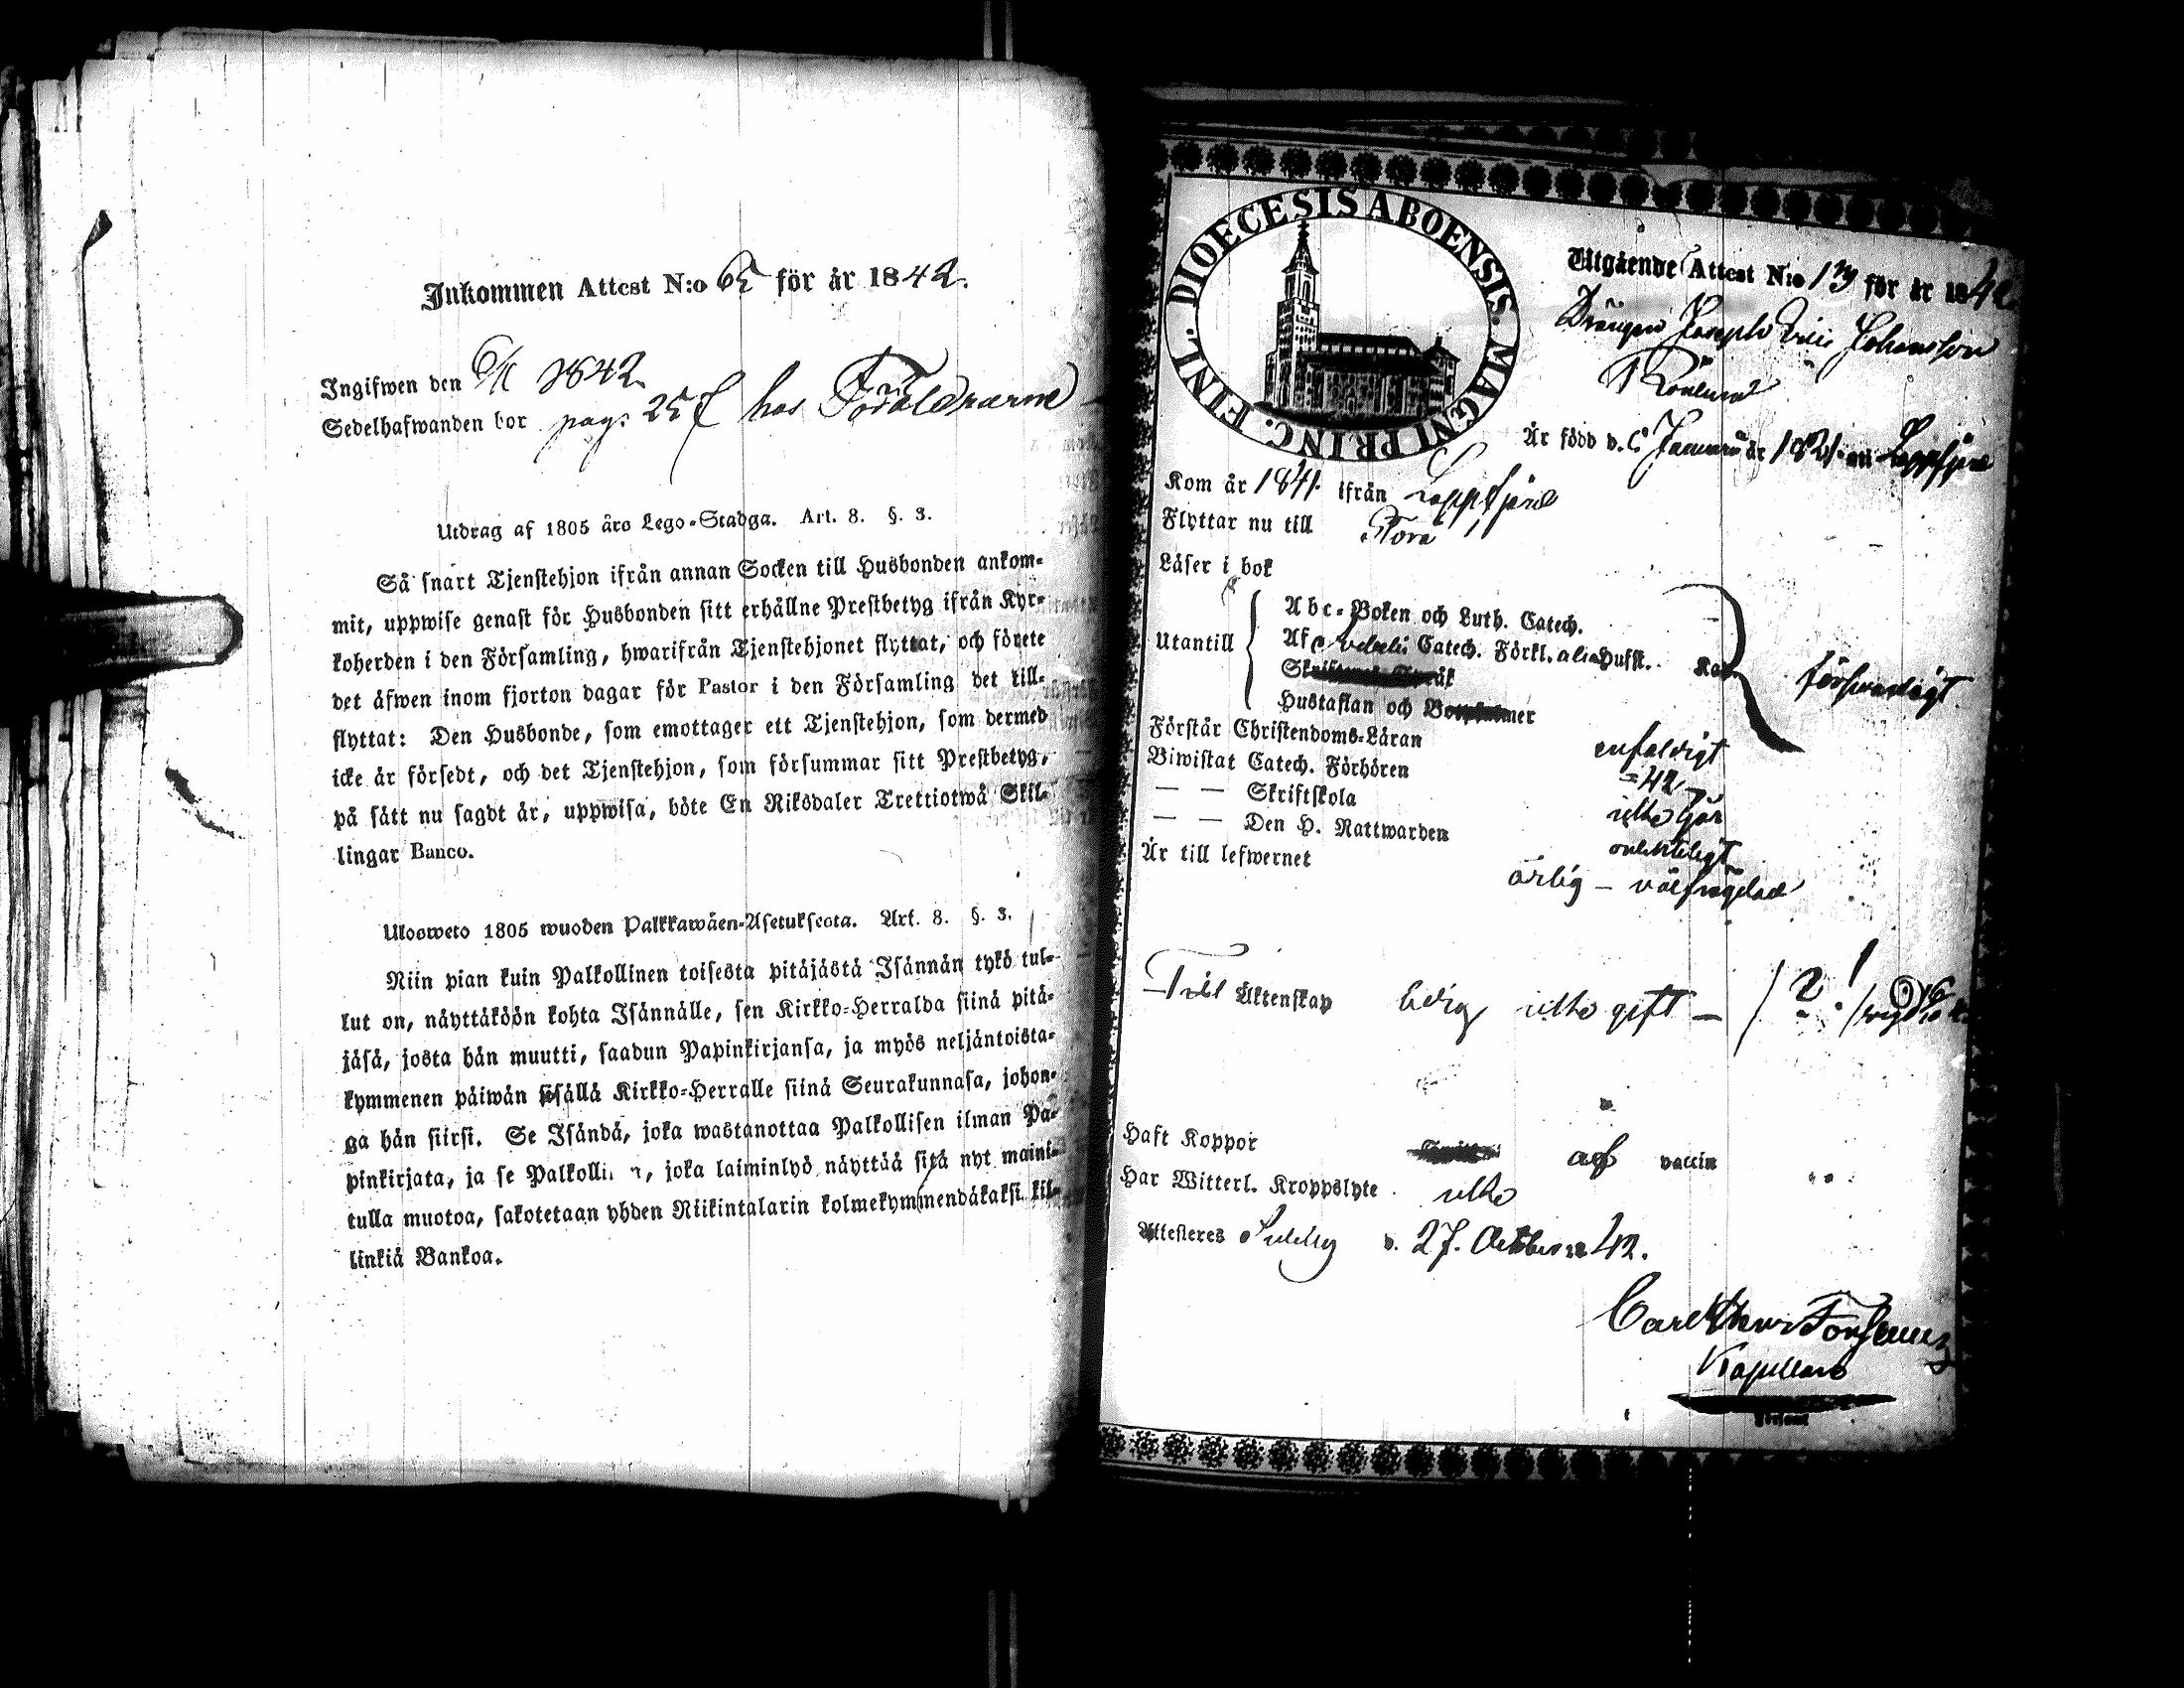 Inkommen Attest N:o 65 för år 1842.
Ingifwen den 6/11 1842.
Sedelhafwanden bor pag. 257 hos Föräldrarne
Utdrag af 1805 års Lego-Stadga. Art. 8. §. 3.
Så snart Tjenstehjon ifrån annan Socken till Husbonden ankom-
mit, uppwise genast för Husbonden sitt erhållne Prestbetyg ifrån Kyr-
koherden i den Församling, hwarifrån Tjenstehjonet flyttat, och förete
det äfwen inom fjorton dagar för Pastor i den Församling det till-
flyttat: Den Husbonde, som emottager ett Tjenstehjon, som dermed
icke är försedt, och det Tjenstehjon, som försummar sitt Prestbetyg,
på sätt nu sagdt är, uppwisa, böte En Riksdaler Trettiotwå Skil-
lingar Banco.
Ulosweto 1805 wuoden Palkkawäen-Asetuksesta. Art. 8. §. 3.
Niin pian kuin Palkollinen toisesta pitäjästä Isännän tykö tul-
lut on, näyttäköön kohta Isännälle, sen Kirkko-Herralda siinä pitä-
jäsä, josta hän muutti, saadun Papinkirjansa, ja myös neljäntoista-
kymmenen päiwän sisällä Kirkko-Herralle siinä Seurakunnasa, johon-
ga hän siirsi. Se Isändä, joka wastanottaa Palkollisen ilman Pa-
pinkirjata, ja se Palkolli n, joka laiminlyö näyttää sitä nyt maini-
tulla muotoa, sakotetaan yhden Riikintalarin kolmekymmendäkaksi kil-
linkiä Bankoa.
DIOECESIS ABOENSIS. MAGNI PRINC. FINL.
Utgående Attest N:o för år 1842
Drängen Joseph Johansson
Är född d. Januarii år 1821 uti Lappfjärd
Kom år 1841 ifrån Lappfjärd
Flyttar nu till
Läser i bok
Utantill
Abc-Boken och Luth. Catech.
Catech. Förkl. alia Hufst.
försvarligt
Hustaflan och
Förstår Christendoms-Läran enfaldigt
Biwistat Catech. Förhören 42
— — Skriftskola
— — Den H. Nattwarden ordenteligt
Är till lefwernet ärlig – välfrägdad
Till Äktenskap ledig icke gift – / ? ! /
Haft Koppor af vaccin
Har Witterl. Kroppslyte icke
Attesteras d. 27. October 42.
Carl
Kapellan